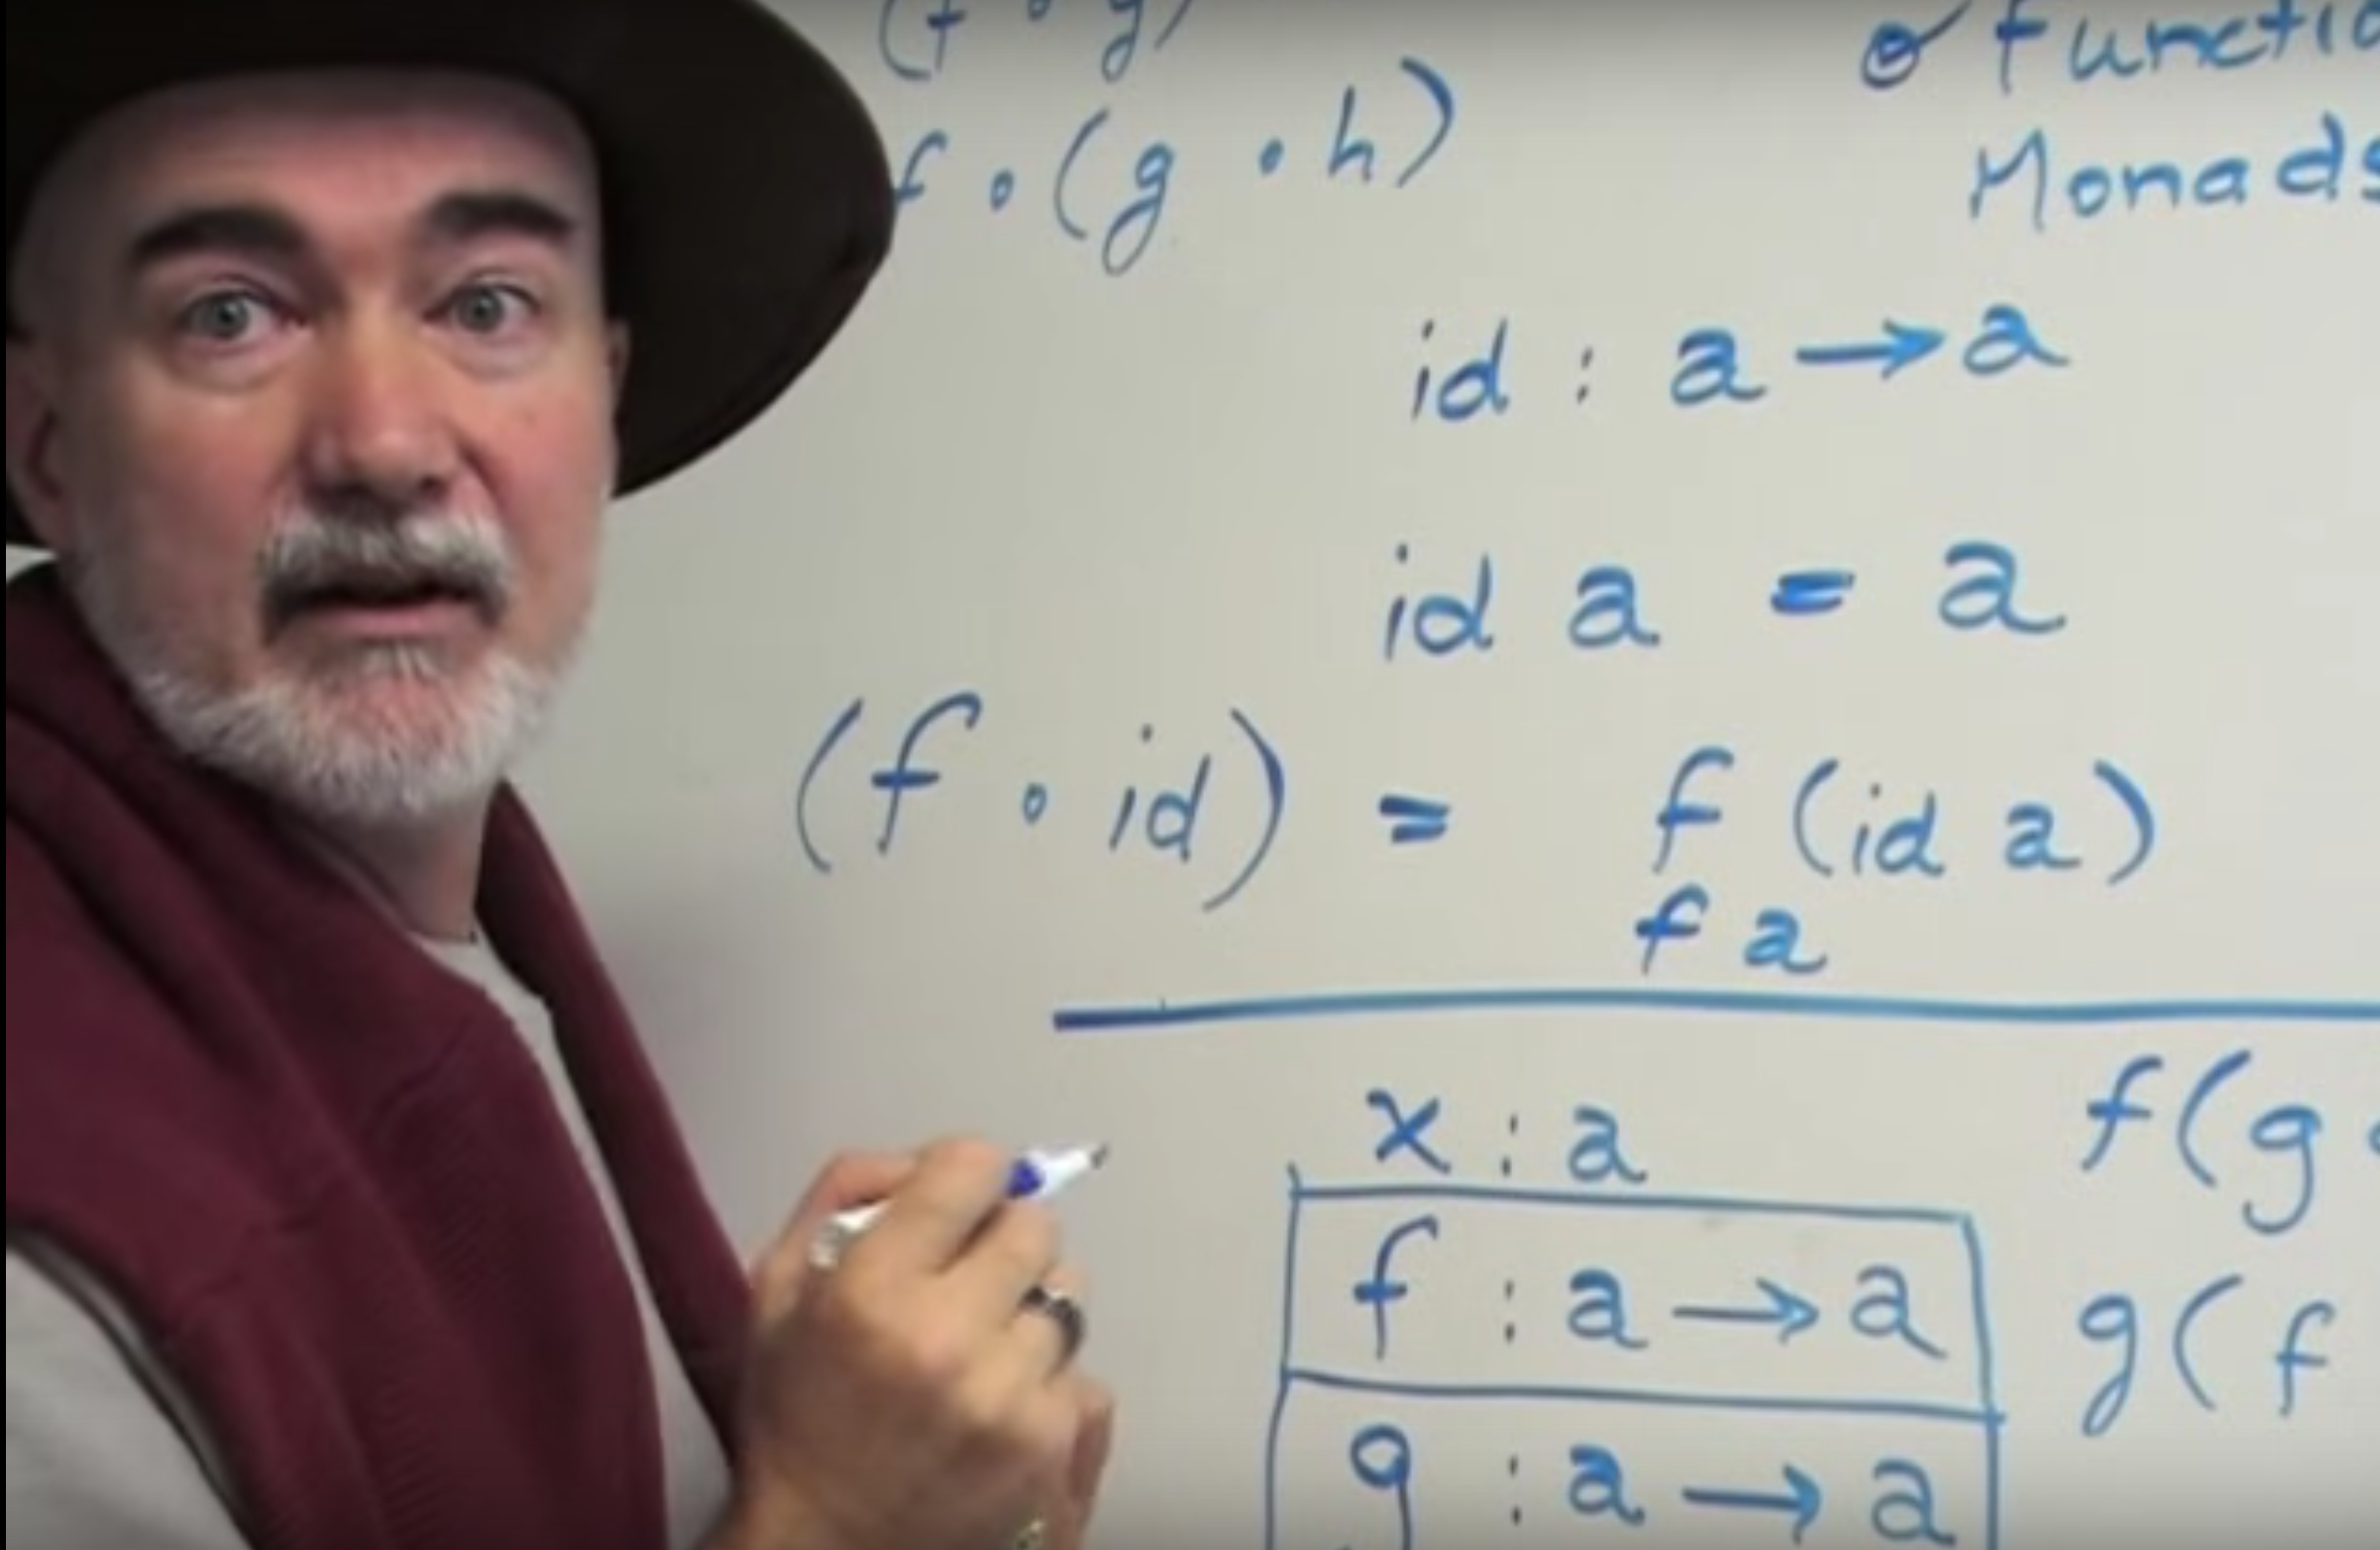 (f ∘ g)
f ∘ (g ∘ h)
Functio
Monads
id : a → a
id a = a
(f ∘ id) = f (id a)
f a
x : a
f : a → a
g : a → a
f(g
g(f